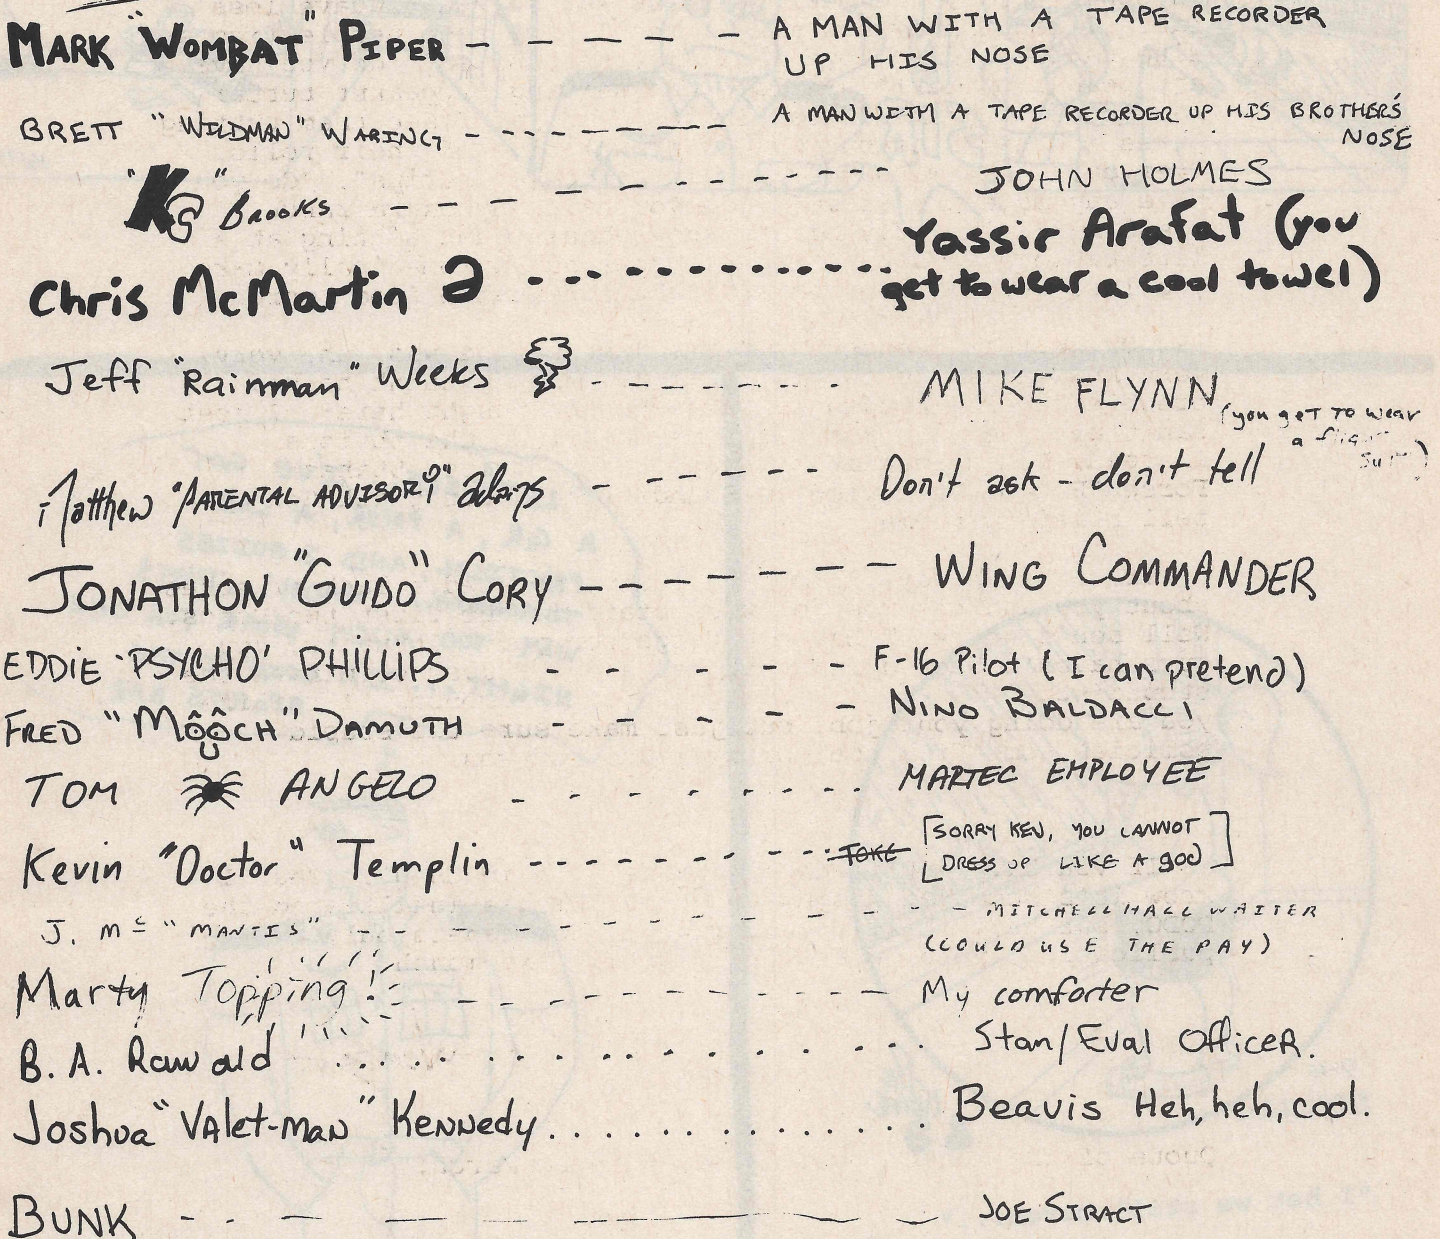 MARK "WOMBAT" PIPER - - - - - A MAN WITH A TAPE RECORDER
UP HIS NOSE
BRETT "WILDMAN" WARING - - - - - - - - A MAN WITH A TAPE RECORDER UP HIS BROTHER'S
NOSE
"KG" Brooks - - - - - - - - - - JOHN HOLMES
Chris McMartin - - - - - - - - - - Yassir Arafat (you
get to wear a cool towel)
Jeff "Rainman" Weeks - - - - - - - - MIKE FLYNN
(you get to wear
a flight
suit)
Matthew "PARENTAL ADVISORY" adams - - - - - - Don't ask - don't tell
JONATHON "GUIDO" CORY - - - - - - - - WING COMMANDER
EDDIE 'PSYCHO' PHILLIPS - - - - - F-16 Pilot (I can pretend)
FRED "MôôCH" DAMUTH - - - - - NINO BALDACCI
TOM ANGELO - - - - - . . . . MARTEC EMPLOYEE
Kevin "Doctor" Templin - - - - - - - - - TOKE [SORRY KEV, YOU CANNOT
DRESS UP LIKE A GOD]
J. Mc "MANTIS" - - - - - - - - - - - MITCHELL HALL WAITER
(COULD USE THE PAY)
Marty Topping! - - - - - - - - - - My comforter
B. A. Rawald . . . . . . . . . . . . . Stan/Eval Officer.
Joshua "Valet-man" Kennedy . . . . . . . . . . . . . Beavis Heh, heh, cool.
BUNK - - - - - - - - JOE STRACT